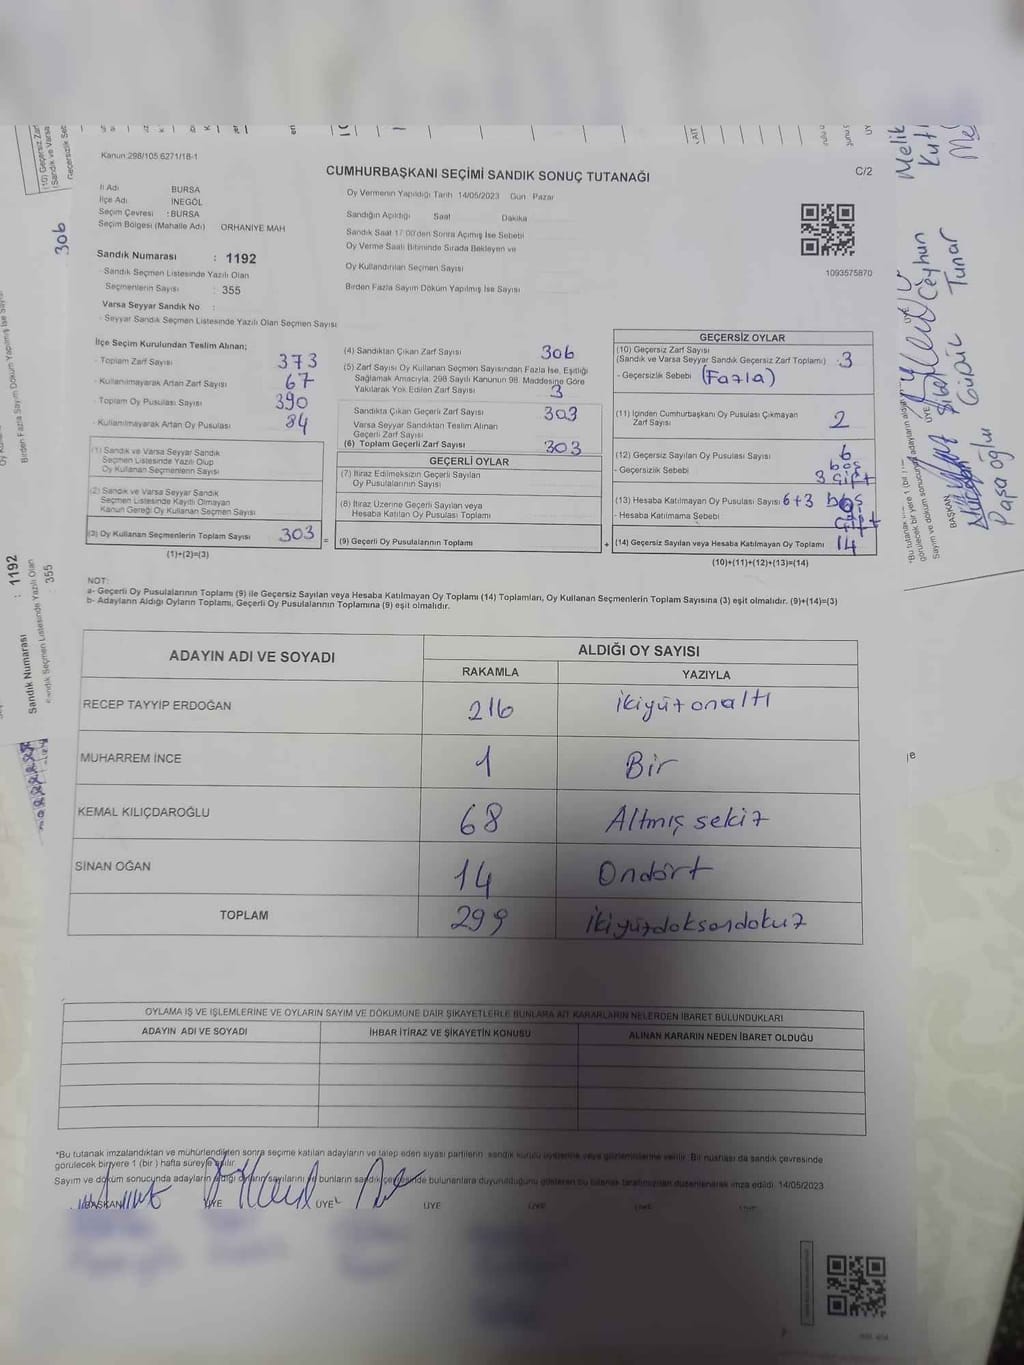 Kanun:298/105 6271/18-1
CUMHURBAŞKANI SEÇİMİ SANDIK SONUÇ TUTANAĞI
C/2
İl Adı BURSA
İlçe Adı İNEGÖL
Seçim Çevresi :BURSA
Seçim Bölgesi (Mahalle Adı) ORHANİYE MAH
Sandık Numarası : 1192
- Sandık Seçmen Listesinde Yazılı Olan
Seçmenlerin Sayısı : 355
Varsa Seyyar Sandık No :
- Seyyar Sandık Seçmen Listesinde Yazılı Olan Seçmen Sayısı
Oy Vermenin Yapıldığı Tarih 14/05/2023 Gün Pazar
Sandığın Açıldığı Saat Dakika
Sandık Saat 17:00'den Sonra Açılmış İse Sebebi
Oy Verme Saati Bitiminde Sırada Bekleyen ve
Oy Kullandırılan Seçmen Sayısı
Birden Fazla Sayım Döküm Yapılmış İse Sayısı
1093575870
İlçe Seçim Kurulundan Teslim Alınan;
- Toplam Zarf Sayısı 373
- Kullanılmayarak Artan Zarf Sayısı 67
- Toplam Oy Pusulası Sayısı 390
- Kullanılmayarak Artan Oy Pusulası 84
(1) Sandık ve Varsa Seyyar Sandık
Seçmen Listesinde Yazılı Olup
Oy Kullanan Seçmenlerin Sayısı
(2) Sandık ve Varsa Seyyar Sandık
Seçmen Listesinde Kayıtlı Olmayan
Kanun Gereği Oy Kullanan Seçmen Sayısı
(3) Oy Kullanan Seçmenlerin Toplam Sayısı 303
(1)+(2)=(3)
(4) Sandıktan Çıkan Zarf Sayısı 306
(5) Zarf Sayısı Oy Kullanan Seçmen Sayısından Fazla İse, Eşitliği
Sağlamak Amacıyla, 298 Sayılı Kanunun 98. Maddesine Göre
Yakılarak Yok Edilen Zarf Sayısı 3
Sandıkta Çıkan Geçerli Zarf Sayısı 303
Varsa Seyyar Sandıktan Teslim Alınan
Geçerli Zarf Sayısı
(6) Toplam Geçerli Zarf Sayısı 303
GEÇERLİ OYLAR
(7) İtiraz Edilmeksizin Geçerli Sayılan
Oy Pusulalarının Sayısı
(8) İtiraz Üzerine Geçerli Sayılan veya
Hesaba Katılan Oy Pusulası Toplamı
= (9) Geçerli Oy Pusulalarının Toplamı
GEÇERSİZ OYLAR
(10) Geçersiz Zarf Sayısı
(Sandık ve Varsa Seyyar Sandık Geçersiz Zarf Toplamı) 3
- Geçersizlik Sebebi (Fazla)
(11) İçinden Cumhurbaşkanı Oy Pusulası Çıkmayan
Zarf Sayısı 2
(12) Geçersiz Sayılan Oy Pusulası Sayısı 6
- Geçersizlik Sebebi boş
3 çift
(13) Hesaba Katılmayan Oy Pusulası Sayısı 6+3 boş
- Hesaba Katılmama Sebebi çift
+ (14) Geçersiz Sayılan veya Hesaba Katılmayan Oy Toplamı 14
(10)+(11)+(12)+(13)=(14)
NOT:
a- Geçerli Oy Pusulalarının Toplamı (9) ile Geçersiz Sayılan veya Hesaba Katılmayan Oy Toplamı (14) Toplamları, Oy Kullanan Seçmenlerin Toplam Sayısına (3) eşit olmalıdır. (9)+(14)=(3)
b- Adayların Aldığı Oyların Toplamı, Geçerli Oy Pusulalarının Toplamına (9) eşit olmalıdır.
ADAYIN ADI VE SOYADI ALDIĞI OY SAYISI
RAKAMLA YAZIYLA
RECEP TAYYİP ERDOĞAN 216 ikiyüzonaltı
MUHARREM İNCE 1 Bir
KEMAL KILIÇDAROĞLU 68 Altmış sekiz
SİNAN OĞAN 14 Ondört
TOPLAM 299 ikiyüzdoksandokuz
OYLAMA İŞ VE İŞLEMLERİNE VE OYLARIN SAYIM VE DÖKÜMÜNE DAİR ŞİKAYETLERLE BUNLARA AİT KARARLARIN NELERDEN İBARET BULUNDUKLARI
ADAYIN ADI VE SOYADI İHBAR İTİRAZ VE ŞİKAYETİN KONUSU ALINAN KARARIN NEDEN İBARET OLDUĞU
*Bu tutanak imzalandıktan ve mühürlendikten sonra seçime katılan adayların ve talep eden siyasi partilerin sandık kurulu üyelerine veya gözlemcilerine verilir. Bir nüshası da sandık çevresinde
görülecek bir yere 1 (bir ) hafta süreyle asılır.
Sayım ve döküm sonucunda adayların aldığı oyların sayılarını ve bunların sandık çevresinde bulunanlara duyurulduğunu gösteren bu tutanak tarafımızdan düzenlenerek imza edildi. 14/05/2023
BAŞKAN ÜYE ÜYE ÜYE ÜYE ÜYE ÜYE
306
Sandık Numarası : 1192
355
Melik
Kut
Ceyhun
Tunar
GÜDÜL
BAŞKAN
Paşaoğlu